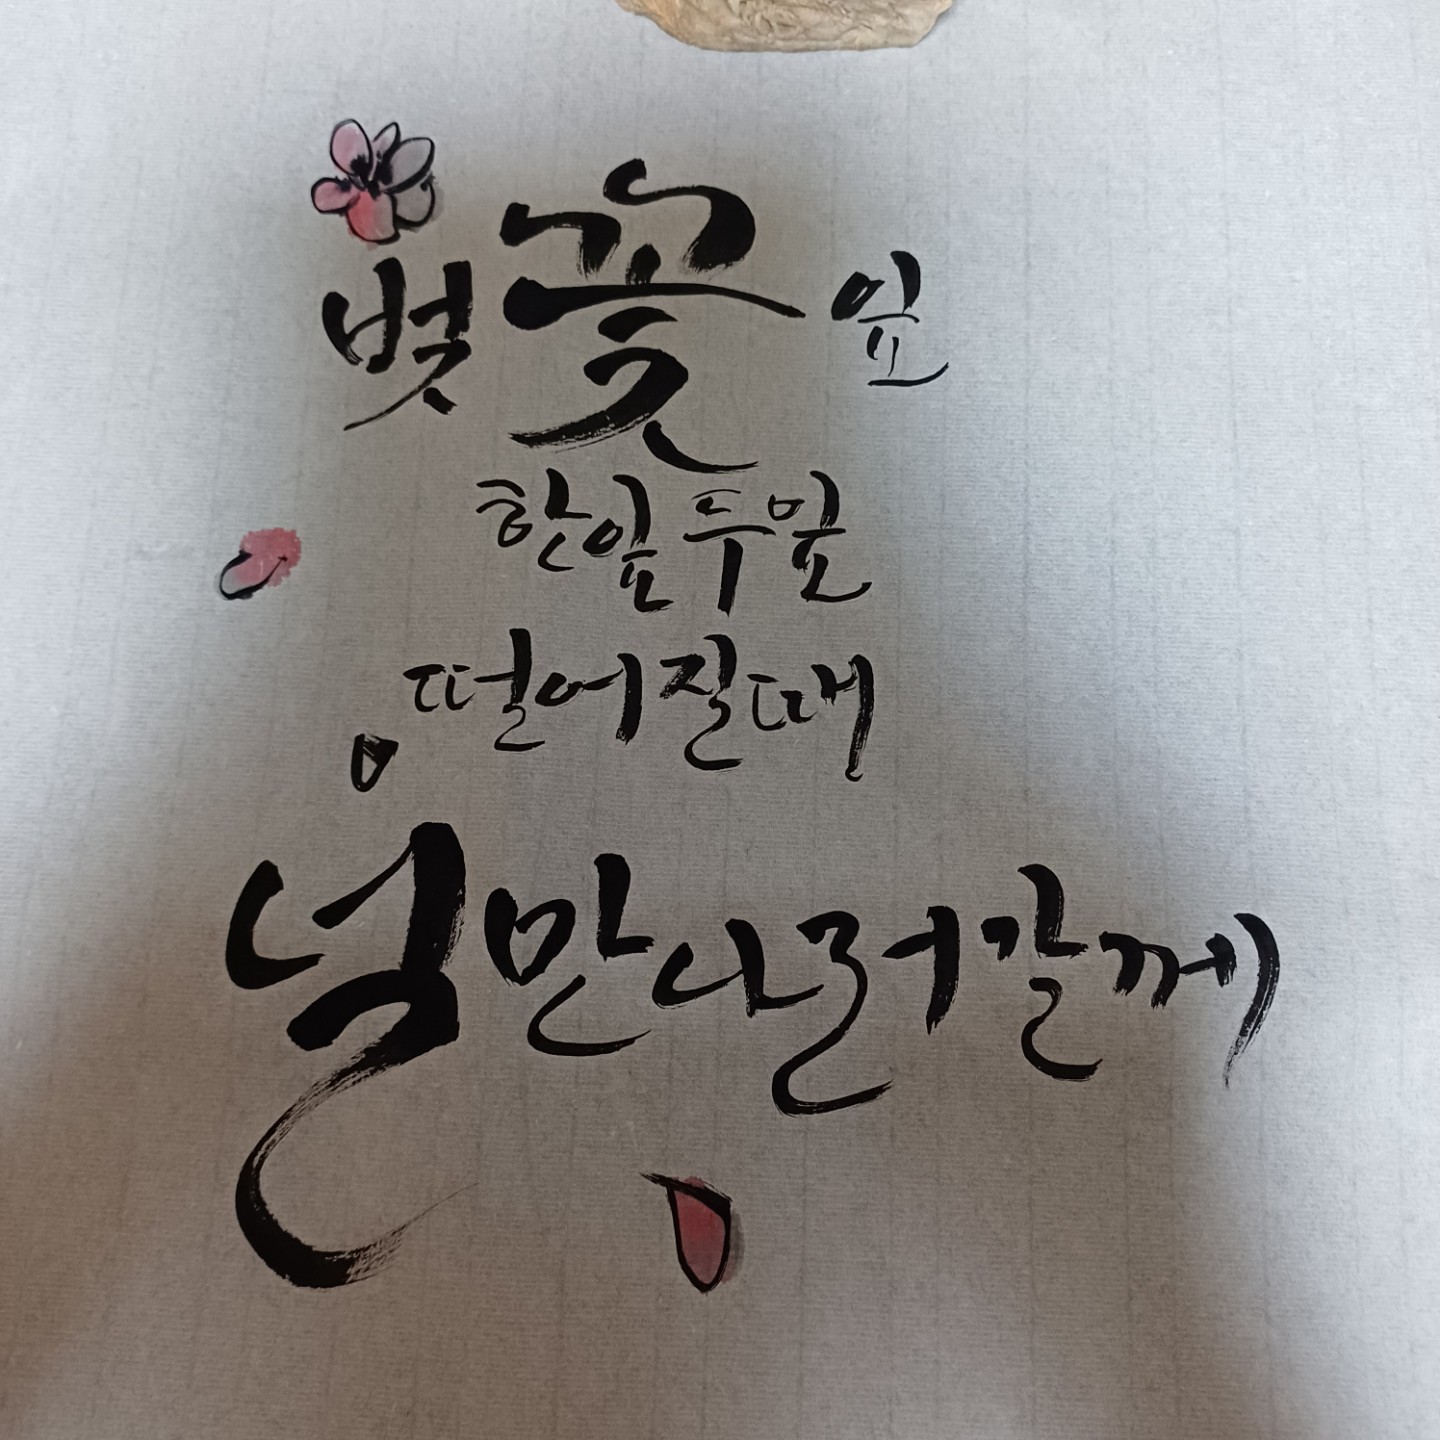 벚꽃잎
한잎두잎
떨어질때
널만나러갈께